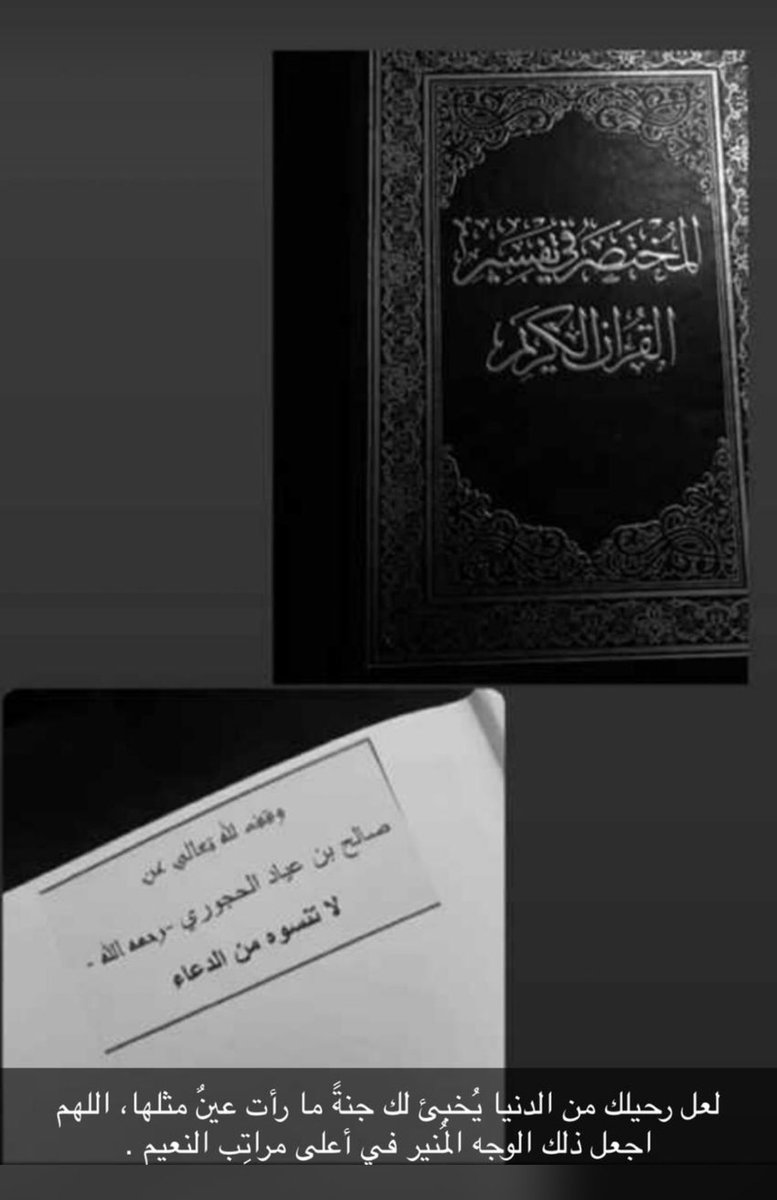 المُختَصَر في تَفسِير
القُرآن الكَرِيم
وقف لله تعالى عن
صالح بن عياد الحجوري -رحمه الله-
لا تنسوه من الدعاء
لعل رحيلك من الدنيا يُخبِئ لك جنةً ما رأت عينٌ مثلها، اللهم
اجعل ذلك الوجه المُنير في أعلى مراتِب النعيم .